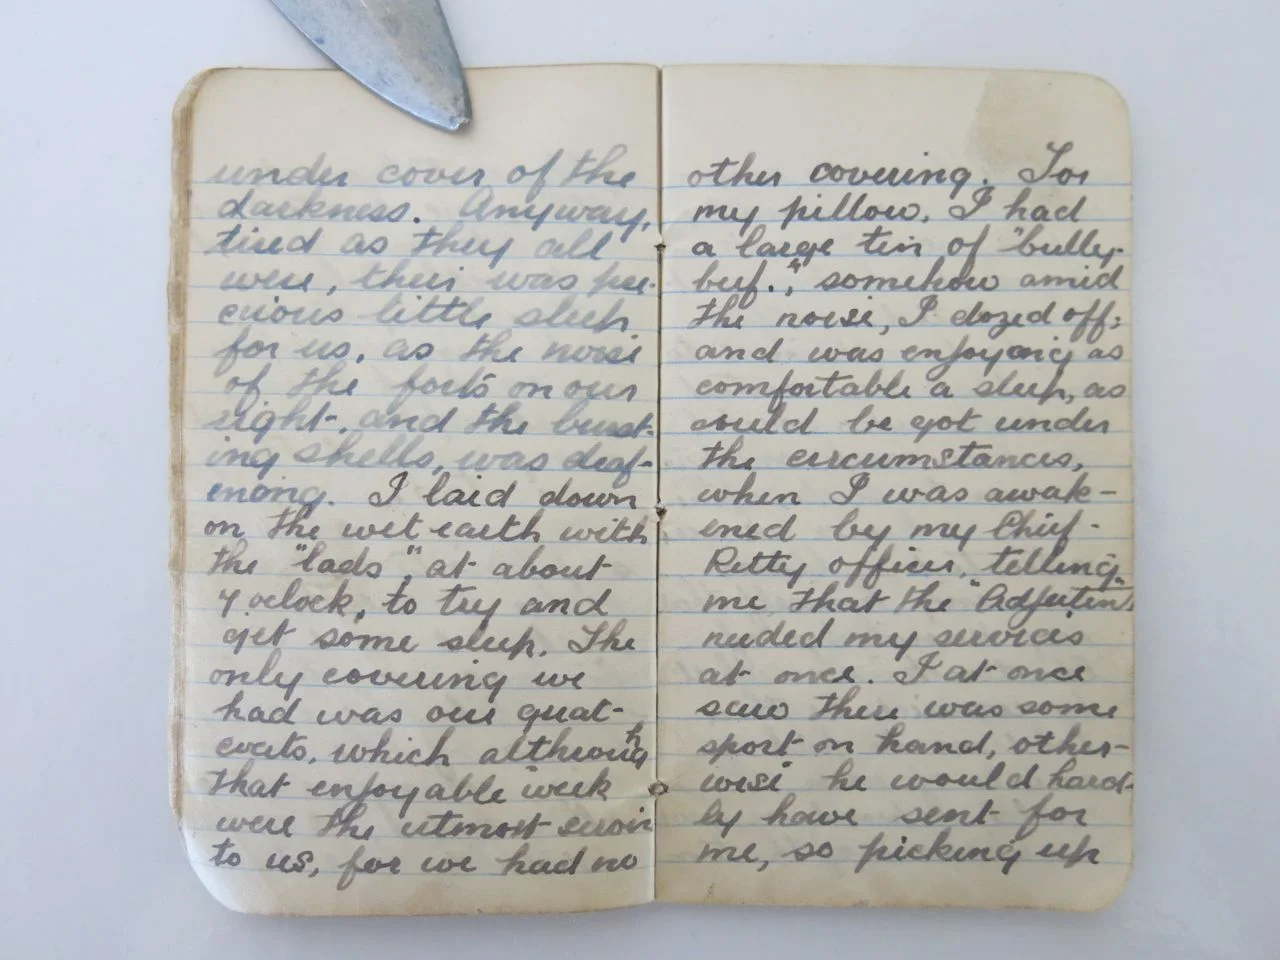 under cover of the
darkness. Anyway,
tired as they all
were, their was pre-
cious little sleep
for us, as the noise
of the forts on our
right, and the burst-
ing shells, was deaf-
ening. I laid down
on the wet earth with
the "lads", at about
7 oclock, to try and
get some sleep. The
only covering we
had was our great-
coats, which although
that enjoyable week
were the utmost
to us, for we had no
other covering. For
my pillow, I had
a large tin of "bully-
beef.", somehow amid
the noise, I dozed off;
and was enjoying as
comfortable a sleep, as
could be got under
the circumstances,
when I was awak-
ened by my Chief-
Petty officer, telling
me, that the "Adjutin"
needed my services
at once. I at once
saw there was some
sport on hand, other-
wise he would hard-
ly have sent for
me, so picking up